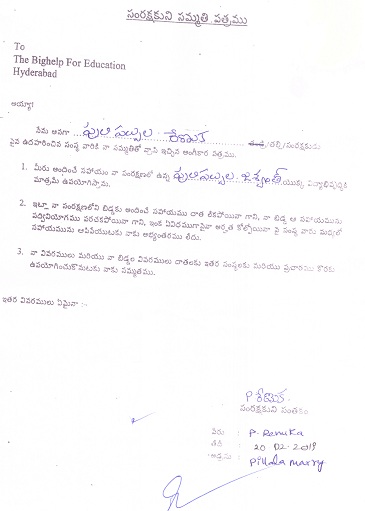 సంరక్షకుని సమ్మతి పత్రము
To
The Bighelp For Education
Hyderabad
అయ్యా!
నేను అనగా ... పులిపల్పుల రేణుక ... తండ్రి/తల్లి/సంరక్షకుడు
పైన ఉదహరించిన సంస్థ వారికి నా సమ్మతితో వ్రాసి ఇచ్చిన అంగీకార పత్రము.
1. మీరు అందించే సహాయం నా సంరక్షణలో ఉన్న పులిపల్పుల యొక్క విద్యాభివృద్ధికి
మాత్రమే ఉపయోగిస్తాను.
2. ఇట్లా నా సంరక్షణలోని బిడ్డకు అందించే సహాయము దాత లేకపోయినా గాని, నా బిడ్డ ఆ సహాయమును
సద్వినియోగము పరచకపోయినా గాని, ఇంక ఏవిధముగానైనా అర్హత కోల్పోయినా పై సంస్థ వారు మధ్యలో
సహాయమును ఆపివేయుటకు నాకు అభ్యంతరము లేదు.
3. నా వివరములు మరియు నా బిడ్డల వివరములు దాతలకు ఇతర సంస్థలకు మరియు ప్రచారము కొరకు
ఉపయోగించుకొనుటకు నాకు సమ్మతము.
ఇతర వివరములు ఏమైనా :-
P రేణుక
సంరక్షకుని సంతకం
పేరు : P. Renuka
తేదీ : 20 02-2019
: Pillalamarry